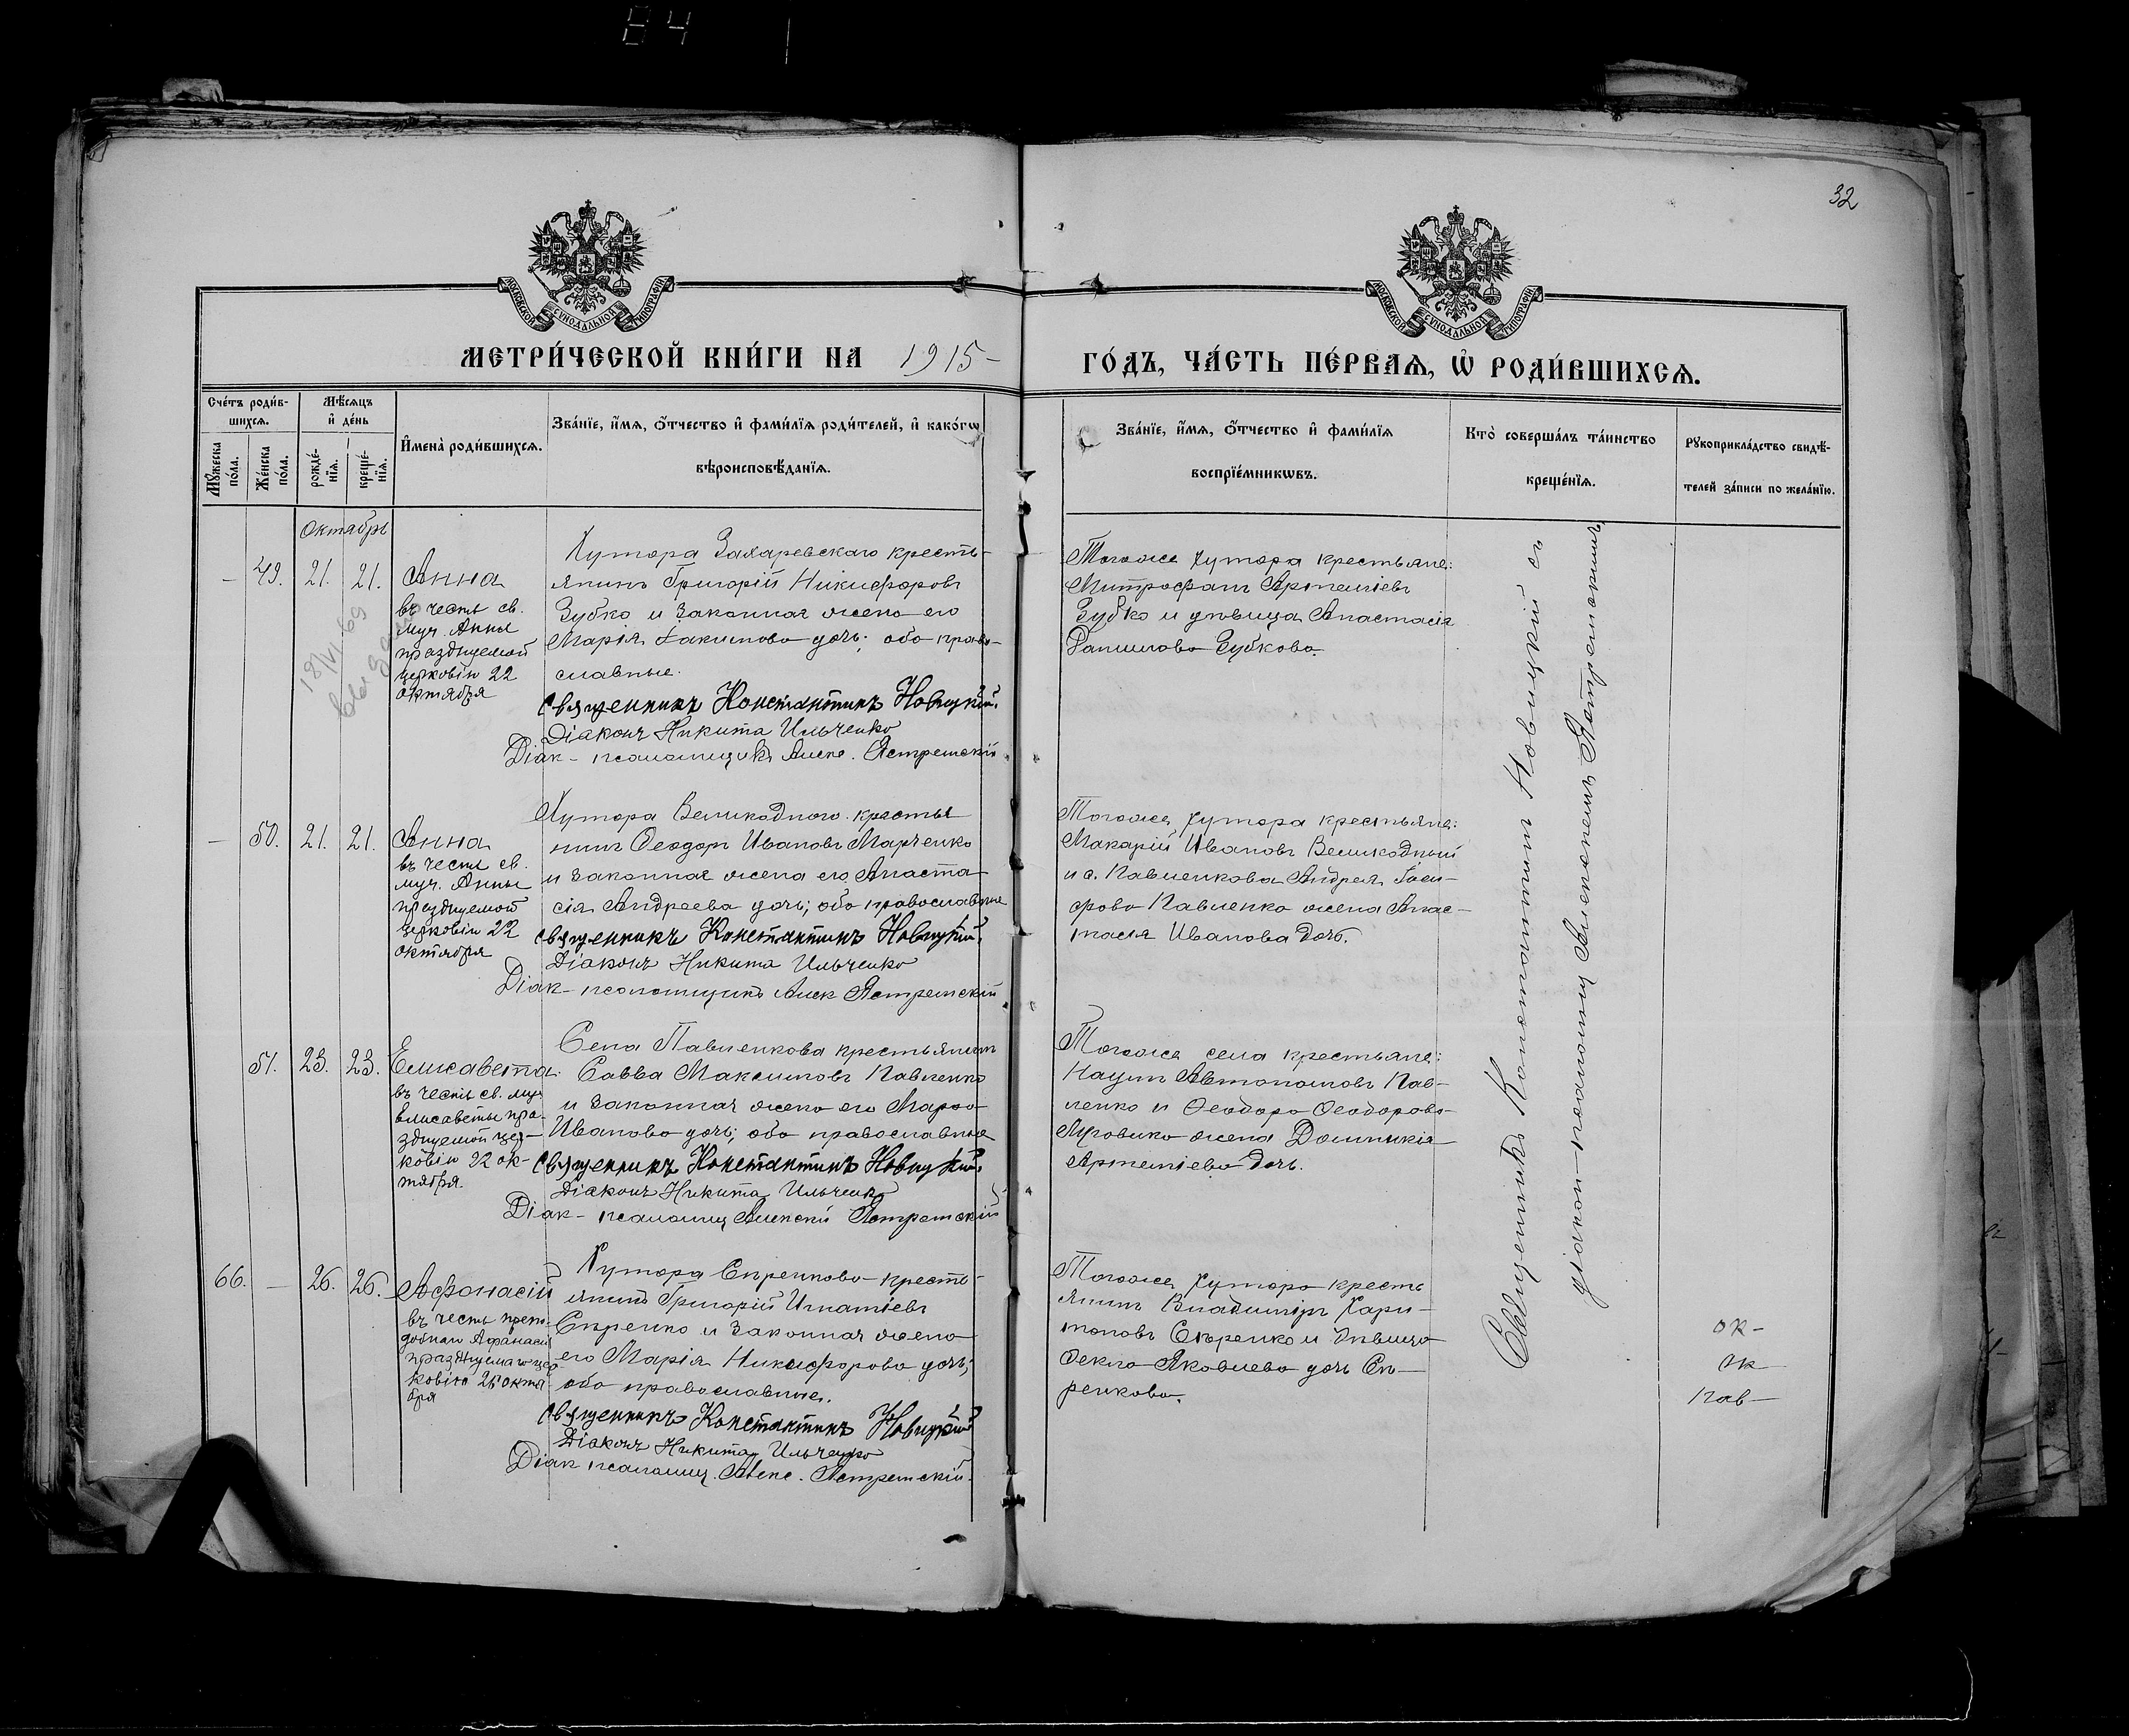 84
32
МОСКОВСКОЙ СѴНОДАЛЬНОЙ ТИПОГРАФІИ
МОСКОВСКОЙ СѴНОДАЛЬНОЙ ТИПОГРАФІИ
МЕТРИ́ЧЕСКОЙ КНИ́ГИ НА 1915 –
ГО́ДЪ, ЧА́СТЬ ПЕ́РВАѦ, Ѡ҆ РОДИ́ВШИХСѦ.
Сче́тъ роди́в-
шихсѧ.
Мꙋжеска по́ла.
Же́нска по́ла.
Мѣ́сѧцъ
и҆ де́нь
рожде́-нїѧ.
креще́-нїѧ.
И҆мена̀ роди́вшихсѧ.
Зва́нїе, и҆́мѧ, ѻ҆́тчество и҆ фами́лїѧ роди́телей, и҆ како́гѡ
вѣроисповѣ́данїѧ.
Зва́нїе, и҆́мѧ, ѻ҆́тчество и҆ фами́лїѧ
воспрїе́мникѡвъ.
Кто̀ соверша́лъ та́инство
креще́нїѧ.
Рꙋкоприкла́дство свидѣ́-
телей за́писи по жела́нїю.
Октябрь
– 49. 21. 21. Анна
въ честь св.
муч. Анны
празднуемой
церковію 22
октября
18/VI 69
Хутора Захаревскаго кресть-
янинъ Григорій Никифоровъ
Зубко и законная жена его
Марія Іакимова дочь; оба право-
славные.
Священникъ Константинъ Новицкій.
Діаконъ Никита Ильченко
Діак – псаломщикъ Алекс. Ястремскій
Тогоже хутора крестьяне:
Митрофанъ Артеміевъ
Зубко и дѣвица Анастасія
Данилова Зубкова.
– 50. 21. 21. Анна
въ честь св.
муч. Анны
празднуемой
церковію 22
октября
Хутора Великоднаго крестья
нинъ Ѳеодоръ Ивановъ Марченко
и законная жена его Анаста
сія Андреева дочь; оба православные
Священникъ Константинъ Новицкій.
Діаконъ Никита Ильченко
Діак – псаломщикъ Алек Ястремскій
Тогоже хутора крестьяне:
Макарій Ивановъ Великодный
и с. Павленкова Андрея
Павленко жена Анас-
тасія Иванова дочь.
51. 23. 23. Елисавета
въ честь св. муч
Елисаветы пра-
зднуемой цер-
ковію 22 ок-
тября.
Села Павленкова крестьянинъ
Савва Максимовъ Павленко
и законная жена его Марѳа
Иванова дочь; оба православные
Священникъ Константинъ Новицкій.
Діаконъ Никита Ильченко
Діак – псаломщ Алексій Ястремскій
Тогоже села крестьяне:
Наумъ Автономовъ Пав-
ленко и Ѳеодора Ѳеодорова
жена Домникія
Артеміева дочь.
66. – 26. 26. Афанасій
въ честь препо-
добнаго Афанасія
празднуемаго цер-
ковію 26 октя
бря
Хутора Сѣренкова кресть-
янинъ Григорій Игнатіевъ
Сѣренко и законная жена
его Марія Никифорова дочь;
оба православные.
Священникъ Константинъ Новицкій
Діаконъ Никита Ильченко
Діак псаломщ. Алекс. Ястремскій.
Тогоже хутора кресть
янинъ Владиміръ Хари-
тоновъ Сѣренко и дѣвица
Ѳекла Яковлева дочь Сѣ-
ренкова.
Священникъ Константинъ Новицкій съ
діакон-псаломщ Алексіемъ Ястремскимъ